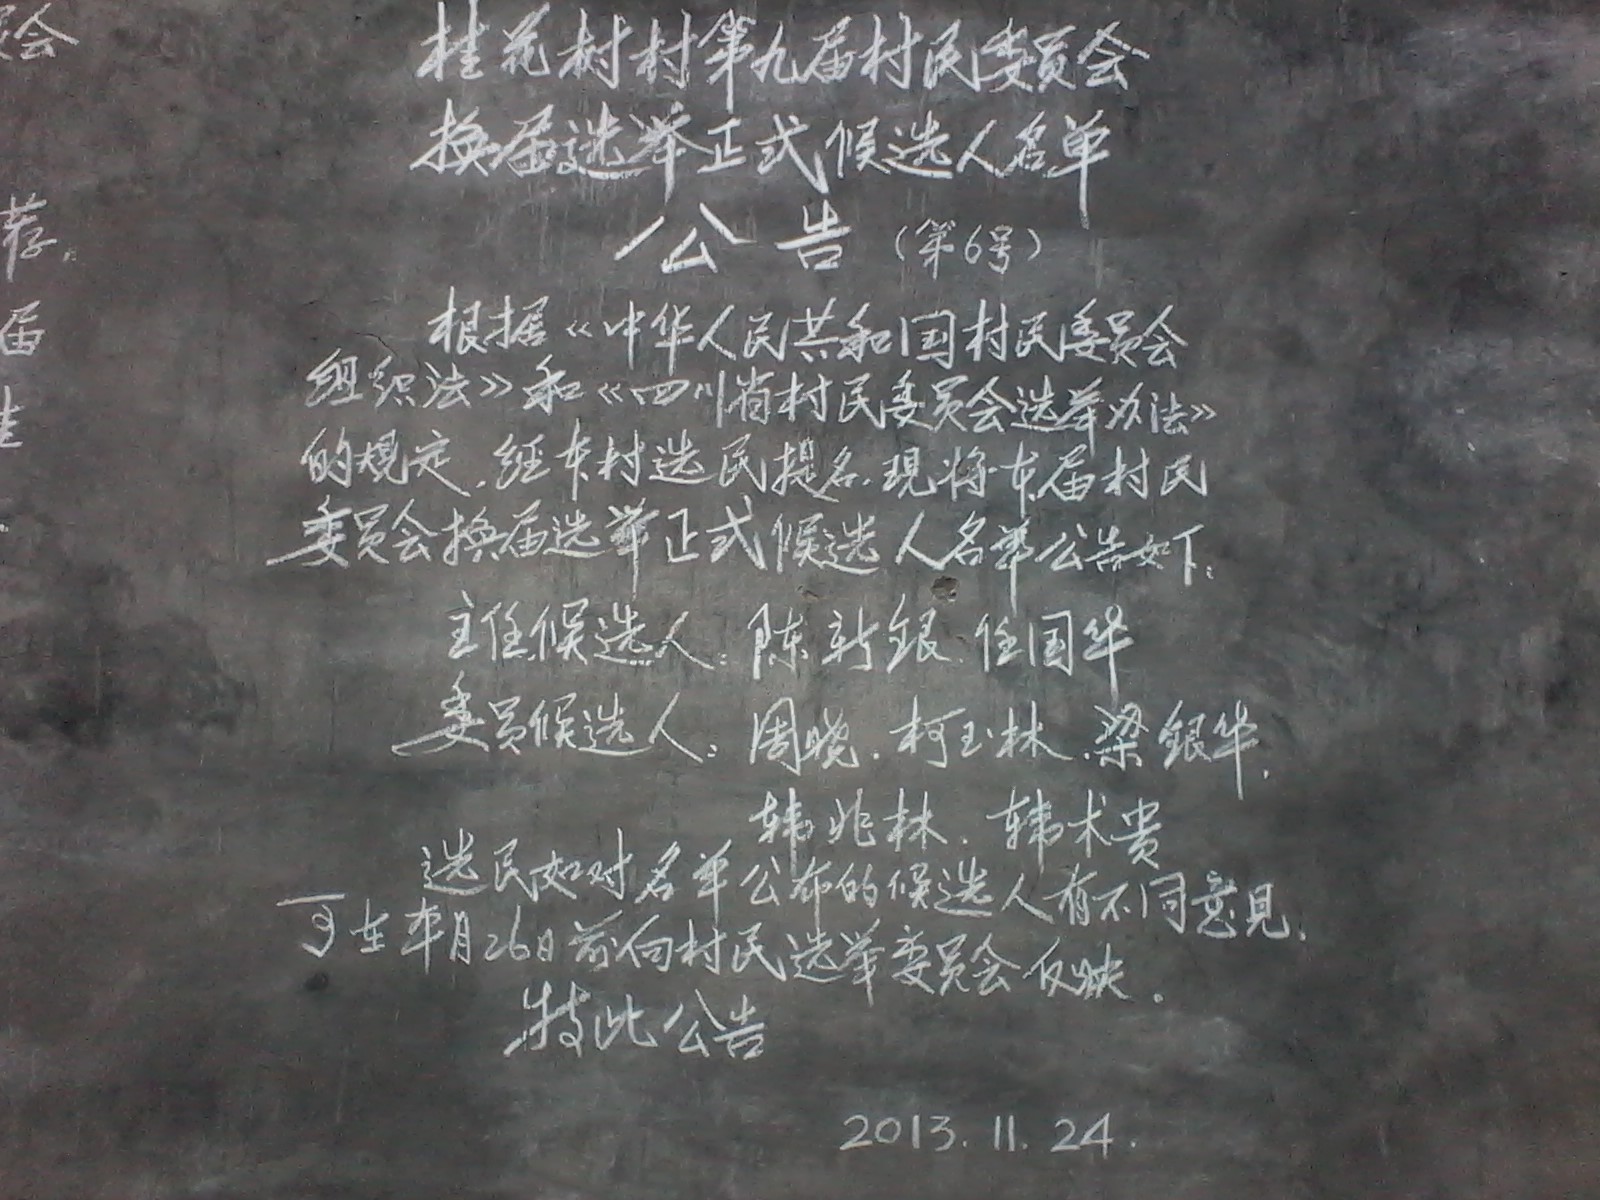 桂花树村第九届村民委员会
换届选举正式候选人名单
公告(第6号)
根据《中华人民共和国村民委员会
组织法》和《四川省村民委员会选举办法》
的规定,经本村选民提名,现将本届村民
委员会换届选举正式候选人名单公告如下:
主任候选人:陈新银、任国华
委员候选人:周晓、柯玉林、梁银华、
韩兆林、韩术贵
选民如对名单公布的候选人有不同意见,
可在本月26日前向村民选举委员会反映。
特此公告
2013.11.24.
员会
荐,
届
生